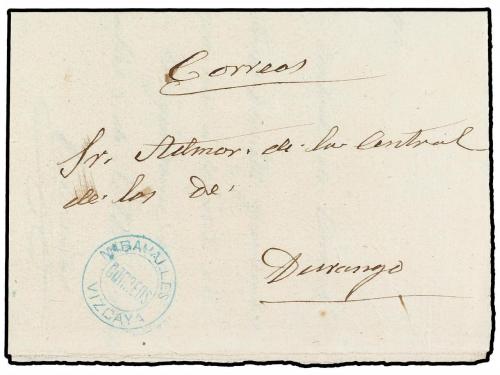 Correos
Sr. Admor. de la Central
de las de.
Durango
MIRAVALLES
CORREOS
VIZCAYA